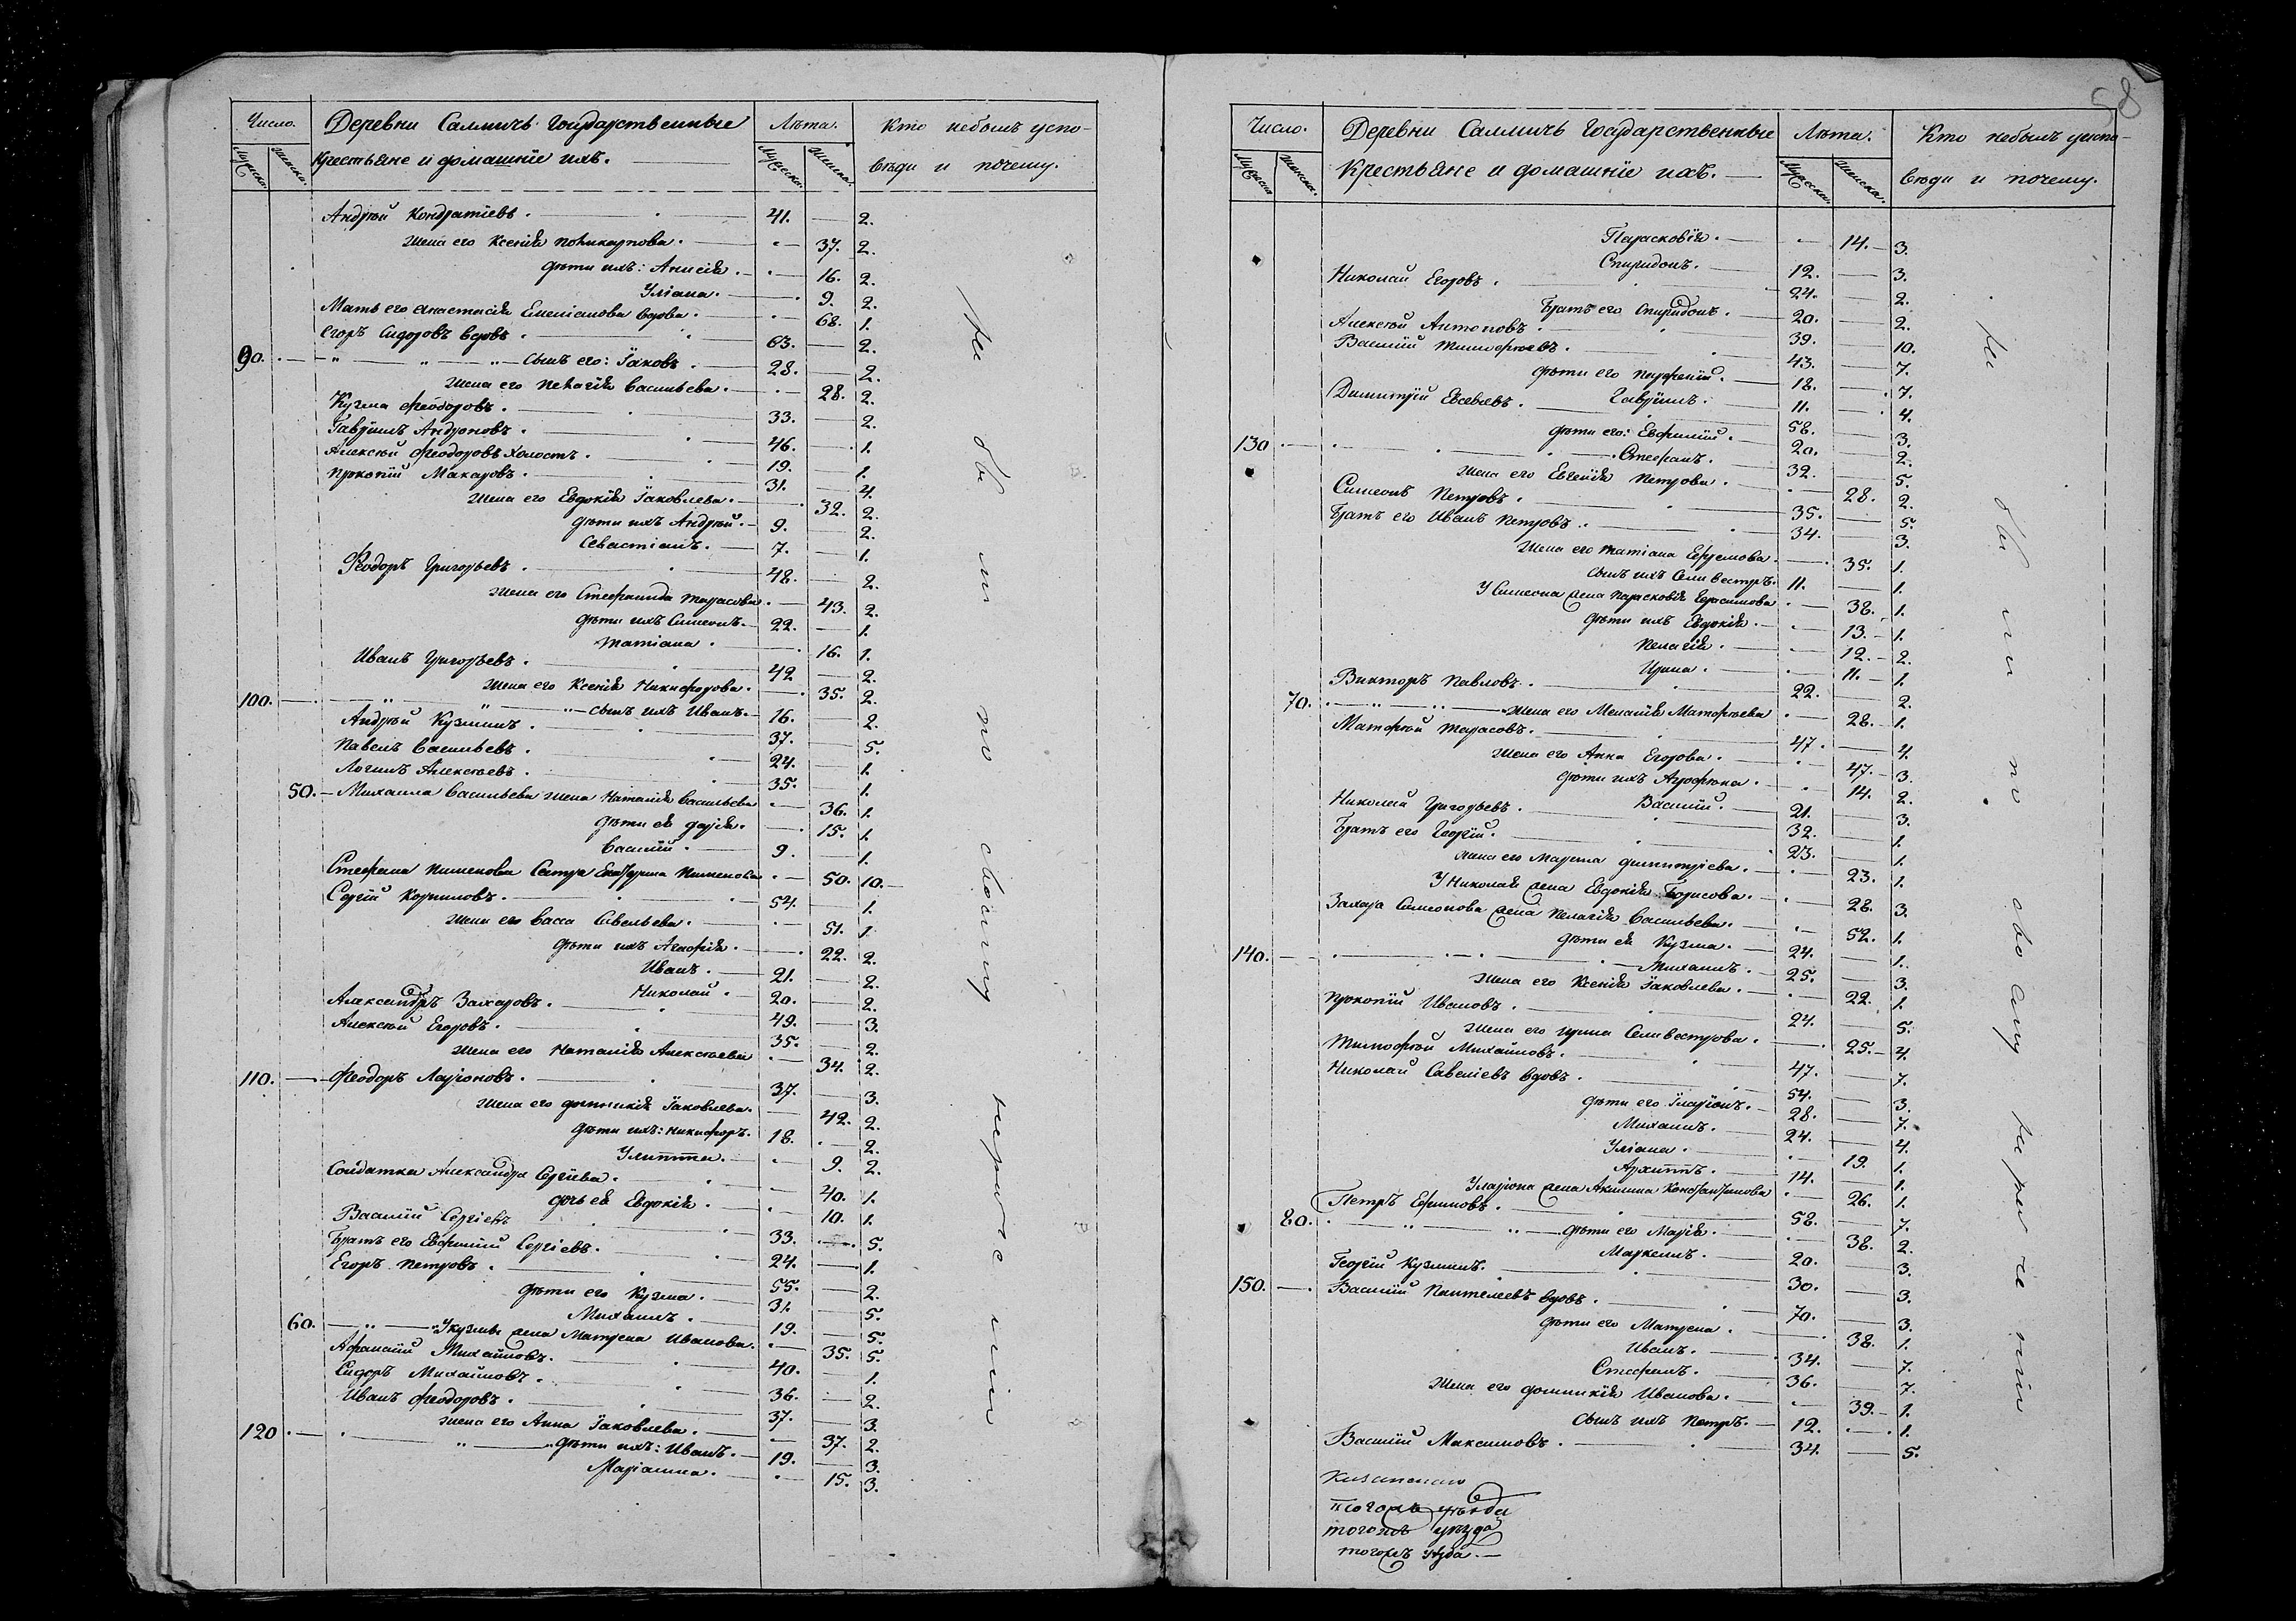 Число. Деревни Саммичь Государственные Лѣта. Кто небылъ уиспо-
Мужеска. Женска. Крестьяне и домашніе ихъ. Мужеска. Женска. вѣди и почему.
Андрей Кондратіевъ. 41. 2.
Жена его Ксенія Поликарпова. 37. 2.
Дѣти ихъ: Анисія. 16. 2.
Уліана. 9. 2.
Мать его Анастасія Емеліанова вдова. 68. 1.
Егоръ Сидоровъ вдовъ. 63. 2.
90. Сынъ его: Іаковъ. 28. 2.
Жена его Пелагія Васильева. 28. 2.
Кузма Феодоровъ. 33. 2.
Гавріилъ Андроновъ. 46. 1.
Алексѣй Феодоровъ холостъ. 19. 1.
Прокопій Макаровъ. 31. 4.
Жена его Евдокія Іаковлева. 32. 2.
Дѣти ихъ Андрей. 9. 2.
Севастіанъ. 7. 1.
Феодоръ Григорьевъ. 48. 2.
Жена его Стефанида Тарасова. 43. 2.
Дѣти ихъ Симеонъ. 22. 1.
Татіана. 16. 1.
Иванъ Григорьевъ. 42 2.
Жена его Ксенія Никифорова. 35. 2.
100. Сынъ ихъ Иванъ. 16. 2.
Андрей Кузминъ. 37. 5.
Павелъ Васильевъ. 24. 1.
Логинъ Алексѣевъ. 35. 1.
50. Михаила Васильева жена Наталія Васильева 36. 1.
Дѣти ея Дарія. 15. 1.
Василій. 9. 1.
Стефана Пименова Сестра Екатерина Пименова 50. 10.
Сергій Корниловъ. 54. 1.
Жена его Васса Савельева. 51. 1.
Дѣти ихъ Агафія. 22. 2.
Иванъ. 21. 2.
Николай. 20. 2.
Александръ Захаровъ. 49. 3.
Алексѣй Егоровъ. 35. 2.
Жена его Наталія Алексѣева 34. 2.
110. Феодоръ Ларіоновъ. 37. 3.
Жена его Домникія Іаковлева. 42. 2.
Дѣти ихъ: Никифоръ. 18. 2.
Улитта. 9. 2.
Солдатка Александра Сергіева. 40. 1.
Дочь ея Евдокія. 10. 1.
Василій Сергіевъ 33. 5.
Братъ его Евфимій Сергіевъ. 24. 1.
Егоръ Петровъ. 55. 2.
Дѣти его Кузма. 31. 5.
Михаилъ. 19. 5.
60. У Кузмы жена Матрена Иванова. 35. 5.
Афанасій Михайловъ. 40. 1.
Сидоръ Михайловъ. 36. 2.
Иванъ Феодоровъ. 37. 3.
Жена его Анна Іаковлева. 37. 2.
120 Дѣти ихъ: Иванъ. 19. 3.
Маріамна. 15. 3.
не были по своему нерачению
58
Число. Деревни Саммичь Государственные Лѣта. Кто небылъ уиспо-
Мужеска Женска. Крестьяне и домашніе ихъ. Мужеска. Женска. вѣди и почему.
Парасковія. 14. 3.
Спиридонъ. 12. 3.
Николай Егоровъ. 24. 2.
Братъ его Спиридонъ. 20. 2.
Алексѣй Антоновъ. 39. 10.
Василій Тимофѣевъ. 43. 7.
Дѣти его Парфеній. 18. 7.
Гавріилъ. 11. 4.
Димитрій Евсевіевъ. 58. 3.
Дѣти его: Евфимій. 20. 2.
130 Стефанъ. 32. 5.
Жена его Евгенія Петрова. 28. 2.
Симеонъ Петровъ. 35. 5.
Братъ его Иванъ Петровъ. 34. 3.
Жена его Татіана Ефремова. 35. 1.
Сынъ ихъ Селивестръ. 11. 1.
У Симеона жена Парасковія Герасимова 38. 1.
Дѣти ихъ Евдокія. 13. 1.
Пелагія. 12. 2.
Ирина. 11. 1.
Викторъ Павловъ. 22. 2.
70. Жена его Меланія Матфѣева 28. 1.
Матфей Тарасовъ. 47. 4.
Жена его Анна Егорова. 47. 3.
Дѣти ихъ Агрофѣна. 14. 2.
Василій. 21. 3.
Николай Григорьевъ. 32. 1.
Братъ его Георгій. 23. 1.
Жена его Марина Димитріева. 23. 1.
У Николая жена Евдокія Борисова. 28. 3.
Захара Симеонова жена Пелагія Васильева. 52. 1.
Дѣти ея Кузма. 24. 1.
140. Михаилъ. 25. 3.
Жена его Ксенія Іаковлева. 22. 1.
Прокопій Ивановъ. 24. 5.
Жена его Ирина Селивестрова. 25. 4.
Тимофей Михайловъ. 47. 7.
Николай Савеліевъ вдовъ. 54. 3.
Дѣти его Іларіонъ. 28. 7.
Михаилъ. 24. 4.
Уліана. 19. 1.
Архиппъ. 14. 1.
У Ларіона жена Акилина Константинова 26. 1.
Петръ Ефимовъ. 58. 7.
80. Дѣти его Марія. 38. 2.
Маркелъ. 20. 3.
Георгій Кузминъ. 30. 3.
150. Василій Пантелеевъ вдовъ. 70. 3.
Дѣти его Матрена. 38. 1.
Иванъ. 34. 7.
Стефанъ. 36. 7.
Жена его Домникія Иванова. 39. 1.
Сынъ ихъ Петръ. 12. 1.
Василій Максимовъ. 34. 5.
тогожъ уѣзда
тогожъ уѣзда
тогожъ уѣзда.
не были по своему нерачению